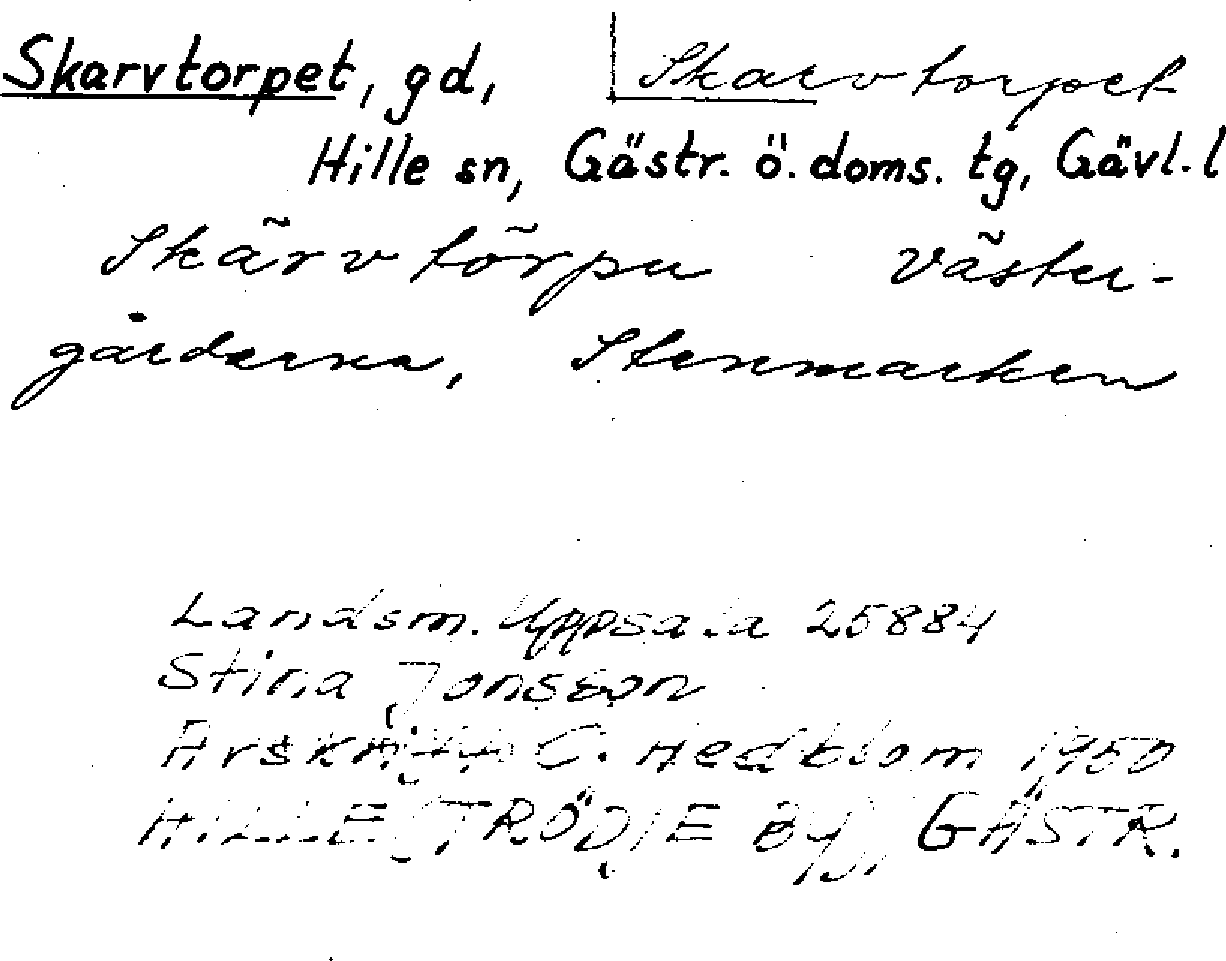 Skarvtorpet, gd, Skarvtorpet
Hille sn, Gästr. ö. doms. tg, Gävl. l
Skãrv tõrpu väster-
gårderna, Stenmarken
Landsm. Uppsala 25884
Stina Jonsson
Avskrift C. Hedblom 1950
HILLE (TRÖDJE BY), GÄSTR.